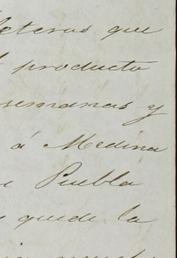 leteros que
producto
semanas y
á Medina
Puebla
quede la